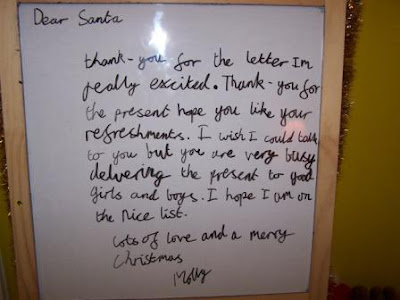 Dear Santa
thank-you for the letter Im
really excited. Thank-you for
the present hope you like your
refreshments. I wish I could talk
to you but you are very busy
delivering the present to good
girls and boys. I hope I am on
the Nice list.
Lots of love and a merry
Christmas
Molly